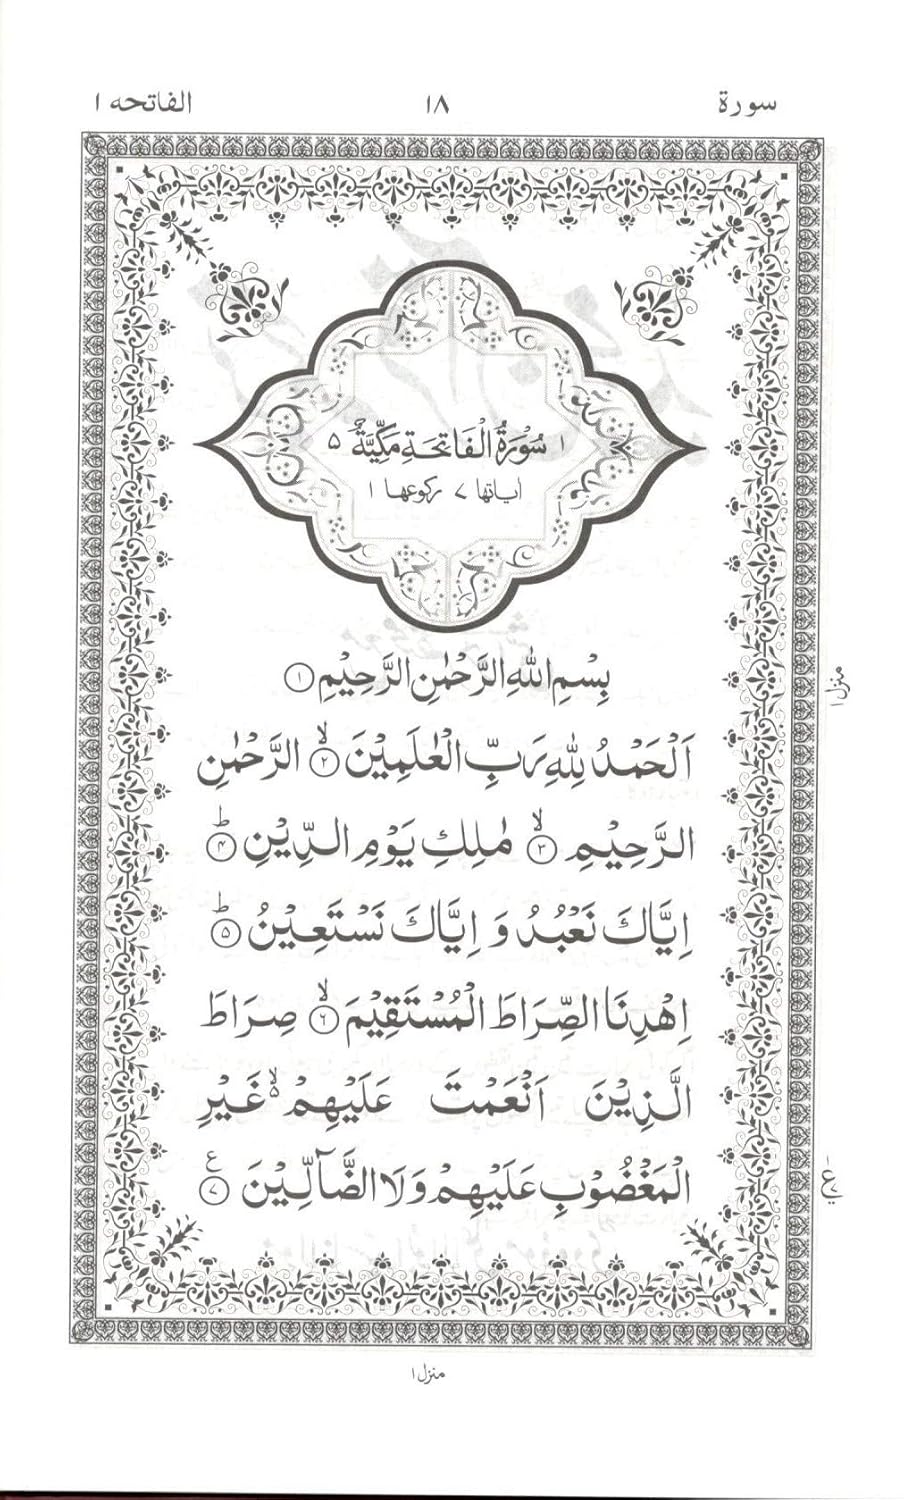 سورة ١٨ الفاتحه ١
١ سُوْرَةُ الْفَاتِحَةِ مَكِّيَّةٌ ٥
اٰياتها ٧ ركوعها ١
بِسْمِ اللّٰهِ الرَّحْمٰنِ الرَّحِيْمِ ١
اَلْحَمْدُ لِلّٰهِ رَبِّ الْعٰلَمِيْنَ ۙ ٢ الرَّحْمٰنِ
الرَّحِيْمِ ۙ ٣ مٰلِكِ يَوْمِ الدِّيْنِ ؕ ۴
اِيَّاكَ نَعْبُدُ وَ اِيَّاكَ نَسْتَعِيْنُ ؕ ۵
اِهْدِنَا الصِّرَاطَ الْمُسْتَقِيْمَ ۙ ٦ صِرَاطَ
الَّذِيْنَ اَنْعَمْتَ عَلَيْهِمْ ۙ غَيْرِ
الْمَغْضُوْبِ عَلَيْهِمْ وَلَا الضَّآلِّيْنَ ع ٧
منزل ١
منزل ١